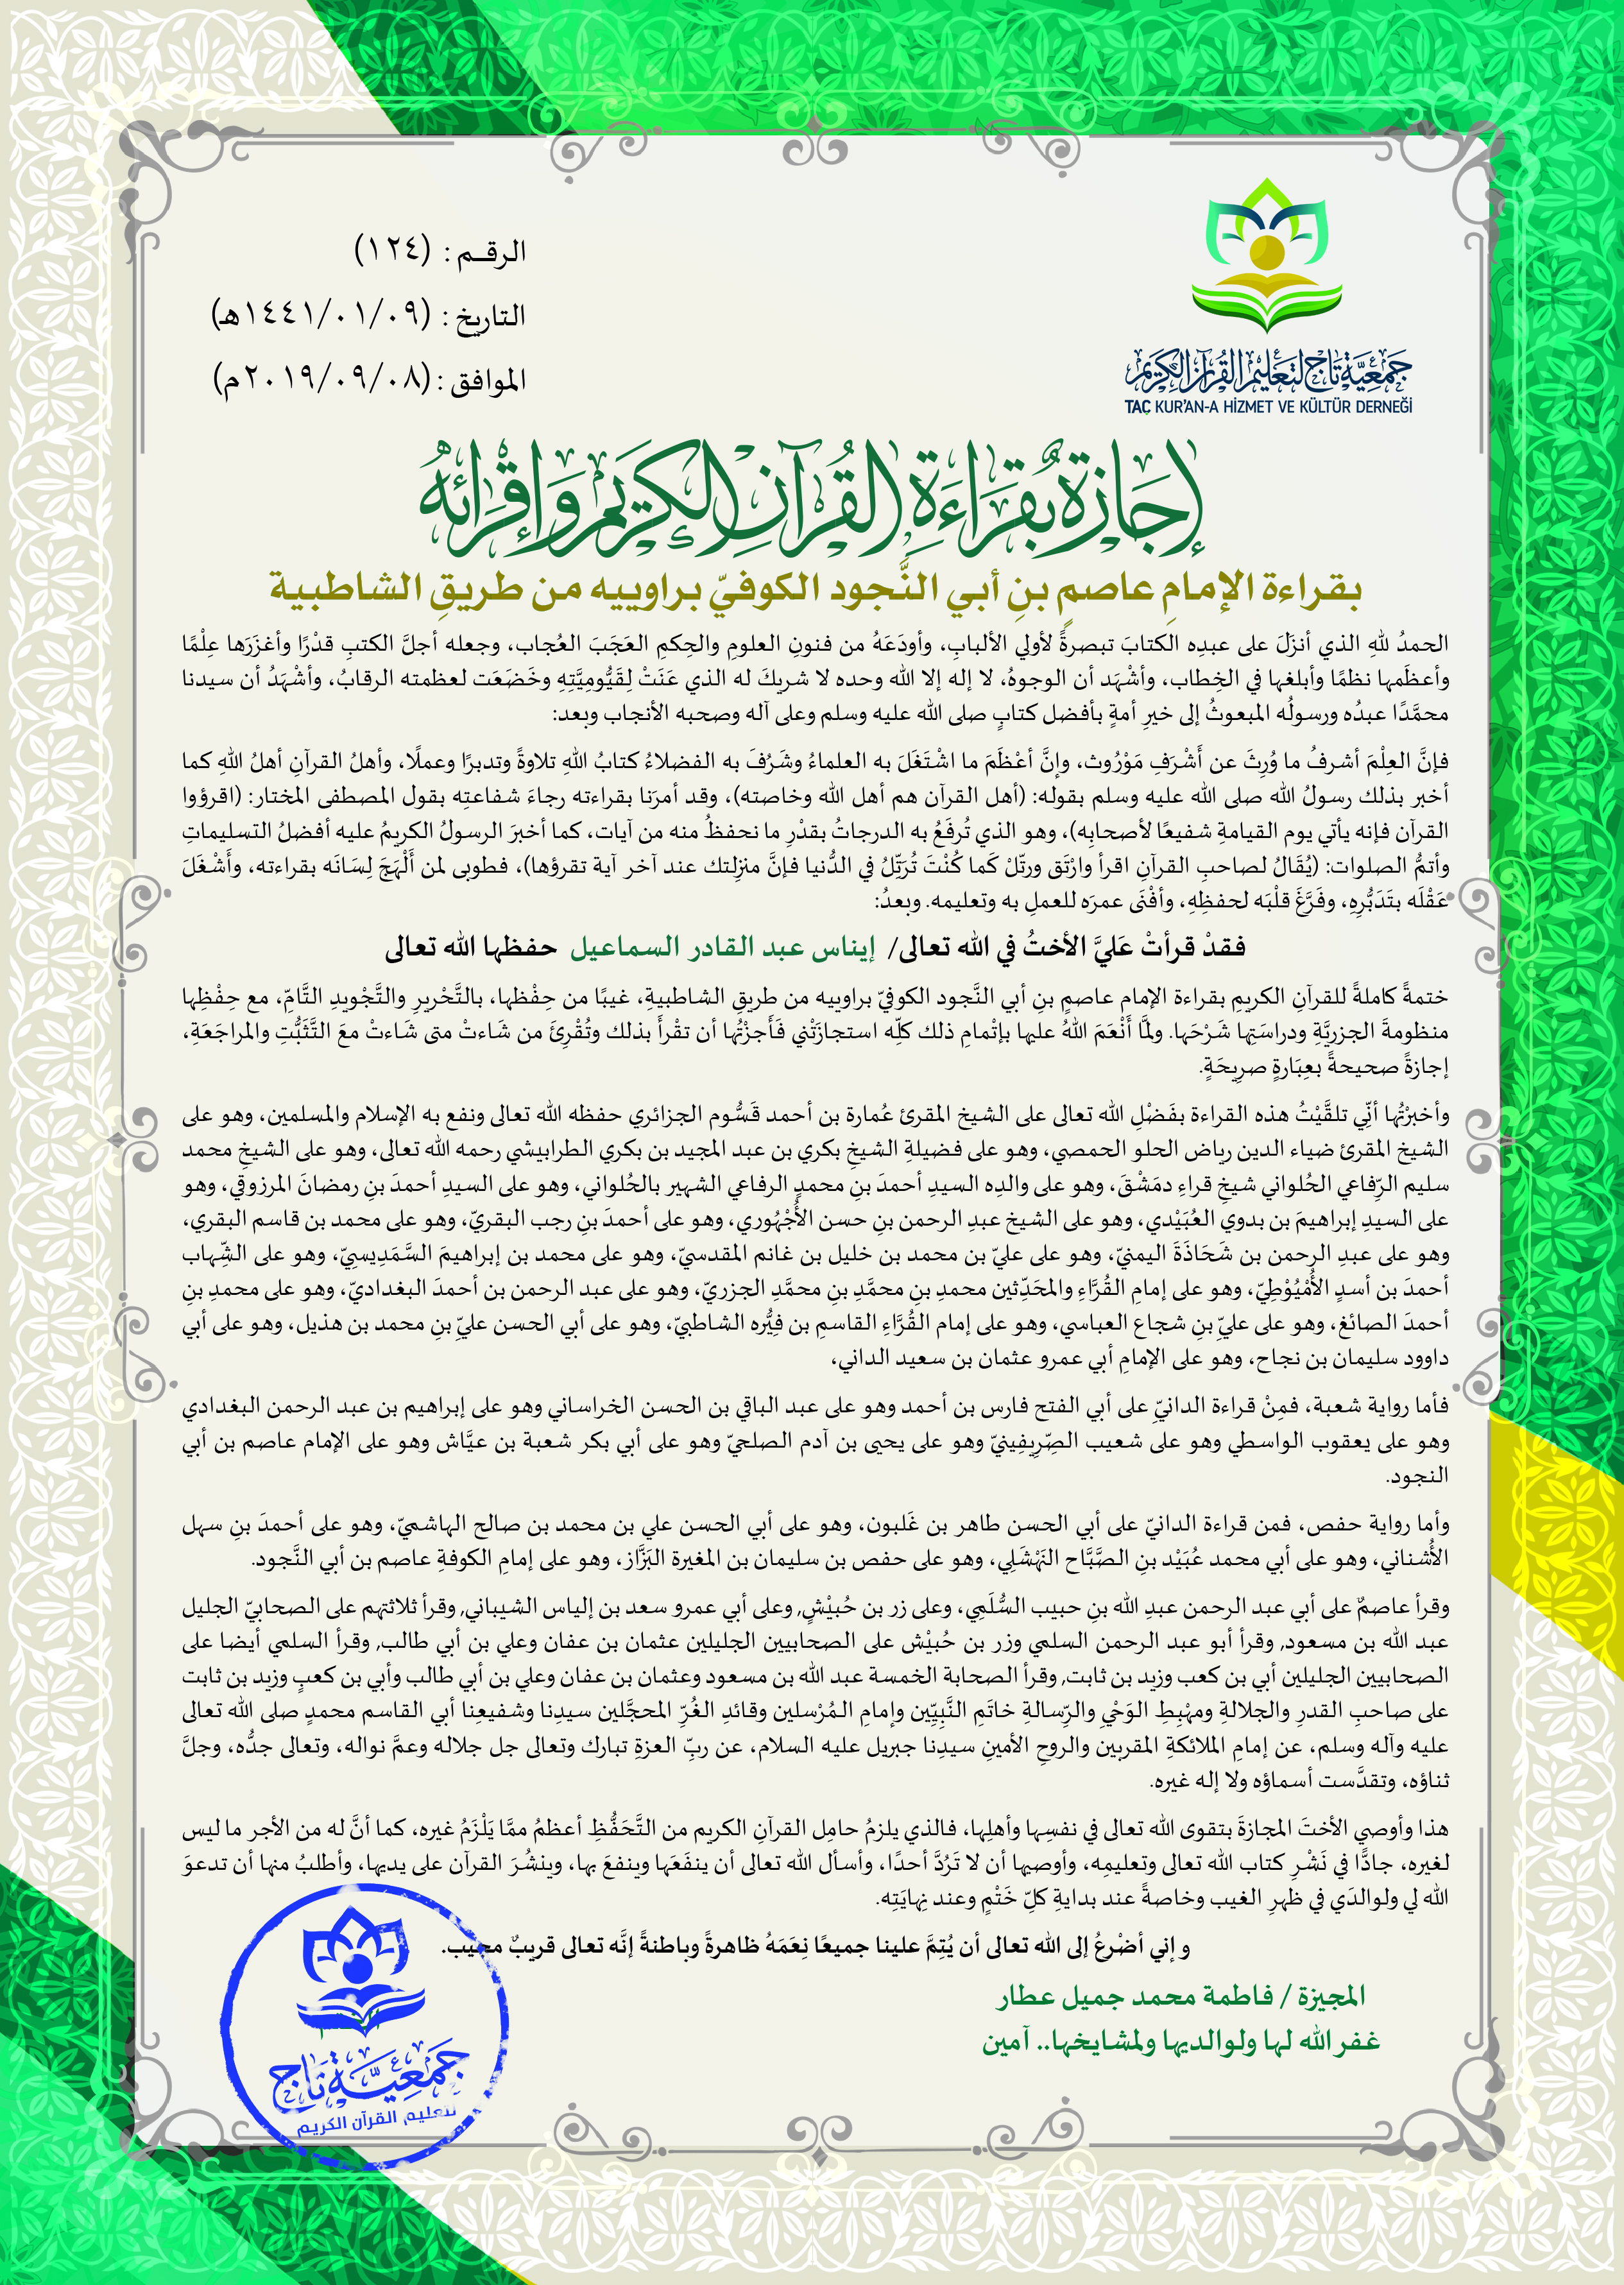 الرقـم : (١٢٤)
التاريخ : (١٤٤١/٠١/٠٩هـ)
الموافق : (٢٠١٩/٠٩/٠٨م)
جمعية تاج لتعليم القرآن الكريم
TAÇ KUR'AN-A HİZMET VE KÜLTÜR DERNEĞİ
إجازة بقراءة القرآن الكريم وإقرائه
بقراءة الإمامِ عاصمِ بنِ أبي النَّجود الكوفيّ براوييه من طريقِ الشاطبية
الحمدُ للهِ الذي أنزَلَ على عبدِه الكتابَ تبصرةً لأولي الألبابِ، وأودَعَهُ من فنونِ العلومِ والحِكمِ العَجَبَ العُجاب، وجعله أجلَّ الكتبِ قدْرًا وأغزَرَها عِلْمًا
وأعظَمها نظمًا وأبلغها في الخِطاب، وأشْهَد أن الوجوهُ، لا إله إلا الله وحده لا شريكَ له الذي عَنَتْ لِقَيُّومِيَّتِهِ وخَضَعَت لعظمته الرقابُ، وأشْهَدُ أن سيدنا
محمَّدًا عبدُه ورسولُه المبعوثُ إلى خيرِ أمةٍ بأفضل كتابٍ صلى الله عليه وسلم وعلى آله وصحبه الأنجاب وبعد:
فإنَّ العِلْمَ أشرفُ ما وُرِثَ عن أَشْرَفِ مَوْرُوث، وإنَّ أعْظَمَ ما اشْتَغَلَ به العلماءُ وشَرُفَ به الفضلاءُ كتابُ اللهِ تلاوةً وتدبرًا وعملًا، وأهلُ القرآنِ أهلُ اللهِ كما
أخبر بذلك رسولُ الله صلى الله عليه وسلم بقوله: (أهل القرآن هم أهل الله وخاصته)، وقد أمرَنا بقراءته رجاءَ شفاعتِه بقول المصطفى المختار: (اقرؤوا
القرآن فإنه يأتي يوم القيامةِ شفيعًا لأصحابِه)، وهو الذي تُرفَعُ به الدرجاتُ بقدْرِ ما نحفظُ منه من آيات، كما أخبرَ الرسولُ الكريمُ عليه أفضلُ التسليماتِ
وأتمُّ الصلوات: (يُقَالُ لصاحبِ القرآنِ اقرأ وارْتَق ورتّلْ كَما كُنْتَ تُرَتّلُ في الدُّنيا فإنَّ منزِلتك عند آخر آية تقرؤها)، فطوبى لمن أَلْهَجَ لِسَانَه بقراءته، وأَشْغَلَ
عَقْلَه بتَدَبُّرِهِ، وفَرَّغَ قلْبَه لحفظِهِ، وأفْنَى عمرَه للعملِ به وتعليمه. وبعدُ:
فقدْ قرأتْ عَليَّ الأختُ في الله تعالى/ إيناس عبد القادر السماعيل حفظها الله تعالى
ختمةً كاملةً للقرآنِ الكريمِ بقراءة الإمام عاصمِ بنِ أبي النَّجود الكوفيّ براوييه من طريقِ الشاطبيةِ، غيبًا من حِفْظها، بالتَّحْريرِ والتَّجْويدِ التَّامِّ، مع حِفْظِها
منظومةَ الجزريَّةِ ودراسَتِها شَرْحَها. ولمَّا أَنْعَمَ اللهُ عليها بإتْمامِ ذلك كلِّه استجازَتْني فَأَجزْتُها أن تقْرأَ بذلك وتُقْرِئَ من شَاءتْ متى شَاءتْ معَ التَّثَبُّتِ والمراجَعَةِ،
إجازةً صحيحةً بعِبَارةٍ صرِيحَةٍ.
وأخبرْتُها أنّي تلقَّيْتُ هذه القراءة بفَضْلِ الله تعالى على الشيخ المقرئ عُمارة بن أحمد قَسُّوم الجزائري حفظه الله تعالى ونفع به الإسلام والمسلمين، وهو على
الشيخ المقرئ ضياء الدين رياض الحلو الحمصي، وهو على فضيلةِ الشيخِ بكري بن عبد المجيد بن بكري الطرابيشي رحمه الله تعالى، وهو على الشيخِ محمد
سليم الرِّفاعي الحُلواني شيخِ قراءِ دمَشْقَ، وهو على والدِه السيدِ أحمدَ بنِ محمدٍ الرفاعي الشهير بالحُلواني، وهو على السيدِ أحمدَ بنِ رمضانَ المرزوقي، وهو
على السيدِ إبراهيمَ بن بدوي العُبَيْدي، وهو على الشيخ عبدِ الرحمن بنِ حسن الأُجْهُوري، وهو على أحمدَ بنِ رجب البقريّ، وهو على محمد بن قاسم البقري،
وهو على عبدِ الرحمن بن شَحَاذَةَ اليمنيّ، وهو على عليّ بن محمد بن خليل بن غانم المقدسيّ، وهو على محمد بن إبراهيمَ السَّمَدِيسِيّ، وهو على الشِّهاب
أحمدَ بن أسدٍ الأُمْيُوْطِيّ، وهو على إمامِ القُرَّاءِ والمحَدِّثين محمدِ بنِ محمَّدِ بنِ محمَّدِ الجزريّ، وهو على عبد الرحمن بن أحمدَ البغداديّ، وهو على محمدِ بنِ
أحمدَ الصائغ، وهو على عليِّ بنِ شجاع العباسي، وهو على إمام القُرَّاءِ القاسمِ بن فِيُّره الشاطبيّ، وهو على أبي الحسن عليِّ بنِ محمد بن هذيل، وهو على أبي
داوود سليمان بن نجاح، وهو على الإمامِ أبي عمرو عثمان بن سعيد الداني،
فأما رواية شعبة، فمِنْ قراءة الدانيّ على أبي الفتح فارس بن أحمد وهو على عبد الباقي بن الحسن الخراساني وهو على إبراهيم بن عبد الرحمن البغدادي
وهو على يعقوب الواسطي وهو على شعيب الصِّرِيفِينيّ وهو على يحيى بن آدم الصلحيّ وهو على أبي بكر شعبة بن عيَّاش وهو على الإمام عاصم بن أبي
النجود.
وأما رواية حفص، فمن قراءة الدانيّ على أبي الحسن طاهر بن غَلبون، وهو على أبي الحسن علي بن محمد بن صالح الهاشميّ، وهو على أحمدَ بنِ سهل
الأُشناني، وهو على أبي محمد عُبَيْد بنِ الصَّبَّاح النَهْشَلِي، وهو على حفص بن سليمان بن المغيرة البَزَّاز، وهو على إمامِ الكوفةِ عاصم بن أبي النَّجود.
وقرأ عاصمٌ على أبي عبد الرحمن عبدِ الله بنِ حبيب السُّلَمِي، وعلى زر بن حُبيْشٍ, وعلى أبي عمرو سعد بن إلياس الشيباني, وقرأ ثلاثتهم على الصحابيّ الجليل
عبد الله بن مسعود, وقرأ أبو عبد الرحمن السلمي وزر بن حُبيْش على الصحابيين الجليلين عثمان بن عفان وعلي بن أبي طالب, وقرأ السلمي أيضا على
الصحابيين الجليلين أبي بن كعب وزيد بن ثابت, وقرأ الصحابة الخمسة عبد الله بن مسعود وعثمان بن عفان وعلي بن أبي طالب وأبي بن كعبٍ وزيد بن ثابت
على صاحبِ القدرِ والجلالةِ ومهْبِطِ الوَحْيِ والرِّسالةِ خاتَمِ النَّبِيِّين وإمامِ المُرْسلين وقائدِ الغُرِّ المحجَّلين سيدِنا وشفيعِنا أبي القاسم محمدٍ صلى الله تعالى
عليه وآله وسلم، عن إمامِ الملائكةِ المقربين والروحِ الأمينِ سيدِنا جبريل عليه السلام، عن ربِّ العزةِ تبارك وتعالى جل جلاله وعمَّ نواله، وتعالى جدُّه، وجلَّ
ثناؤه، وتقدَّست أسماؤه ولا إله غيره.
هذا وأوصي الأختَ المجازةَ بتقوى الله تعالى في نفسِها وأهلِها، فالذي يلزمُ حامِل القرآنِ الكريم من التَّحَفُّظِ أعظمُ ممَّا يَلْزَمُ غيره، كما أنَّ له من الأجر ما ليس
لغيره، جادًّا في نَشْرِ كتاب الله تعالى وتعليمِه، وأوصيها أن لا تَرُدَّ أحدًا، وأسأل الله تعالى أن ينفَعَها وينفعَ بها، وينشُرَ القرآن على يديها، وأطلبُ منها أن تدعوَ
الله لي ولوالدَي في ظهرِ الغيب وخاصةً عند بدايةِ كلِّ خَتْمٍ وعند نِهايَتِه.
و إني أضْرعُ إلى الله تعالى أن يُتِمَّ علينا جميعًا نِعَمَهُ ظاهرةً وباطنةً إنَّه تعالى قريبٌ مجيب.
المجيزة / فاطمة محمد جميل عطار
غفر الله لها ولوالديها ولمشايخها.. آمين
جمعية تاج
لتعليم القرآن الكريم